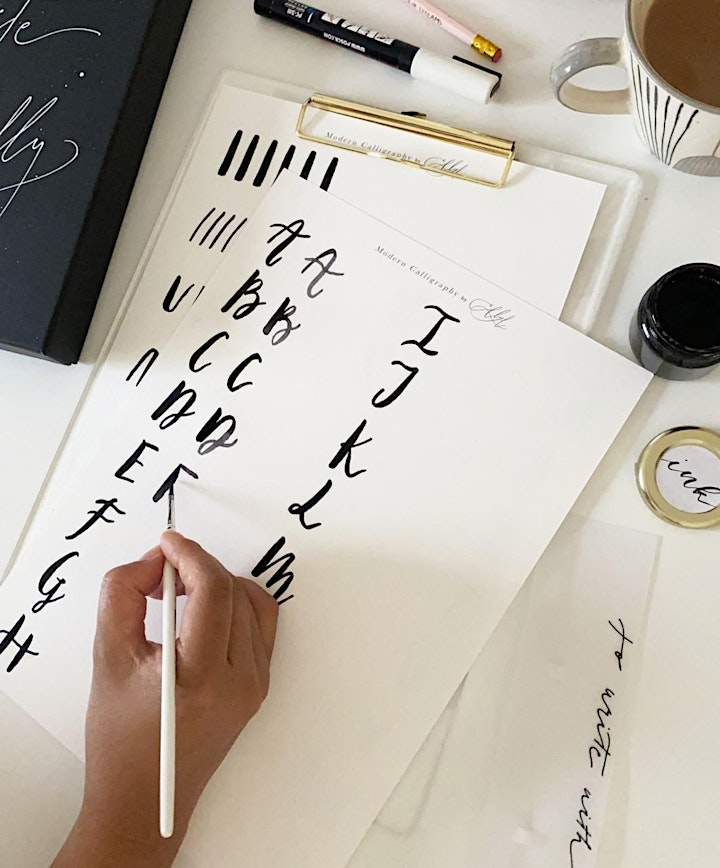 Modern Calligraphy by
Modern Calligraphy by
A A
B B
C C
D D
E
F
G
H
I
J
K
L
M
ink
to write with